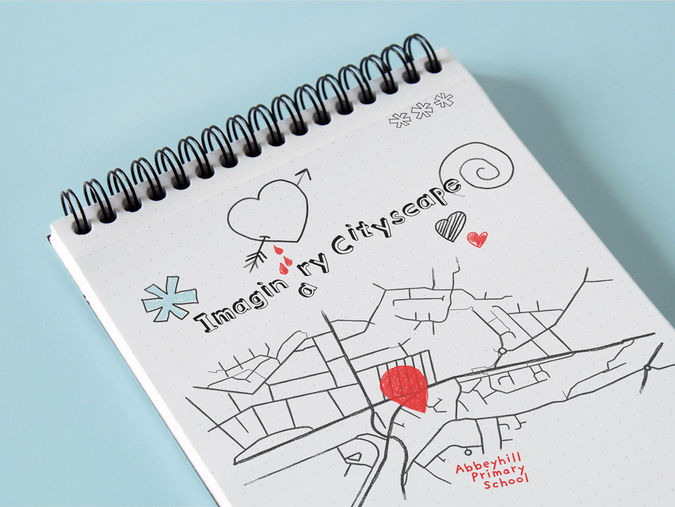 Imaginary Cityscape
Abbeyhill
Primary
School